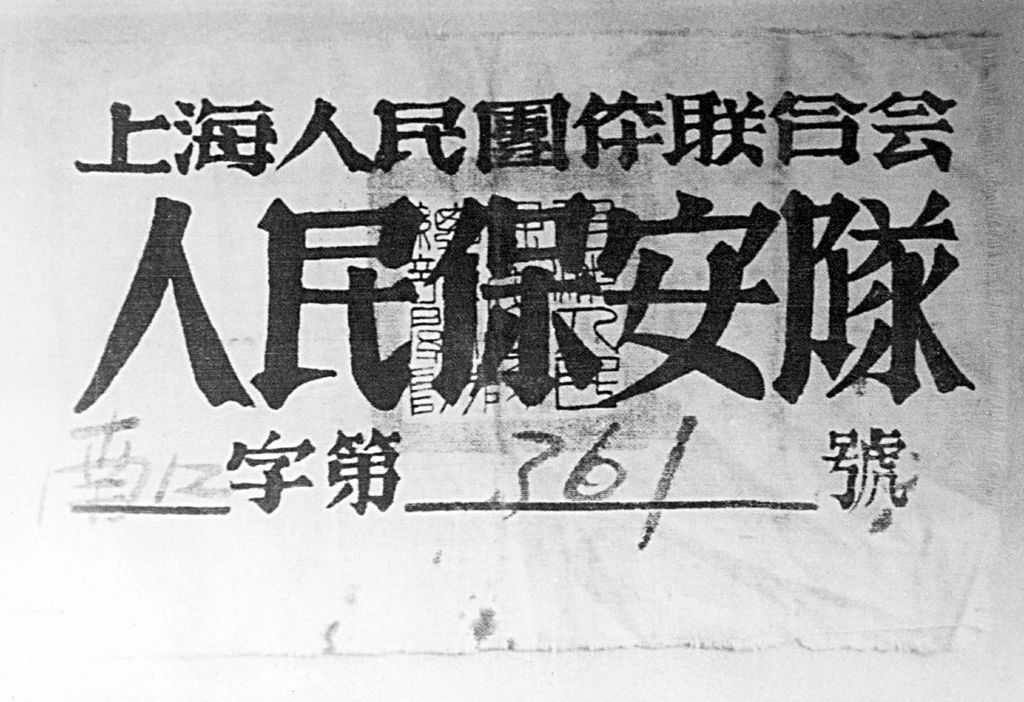 上海人民團体联合会
人民保安隊
字第361號